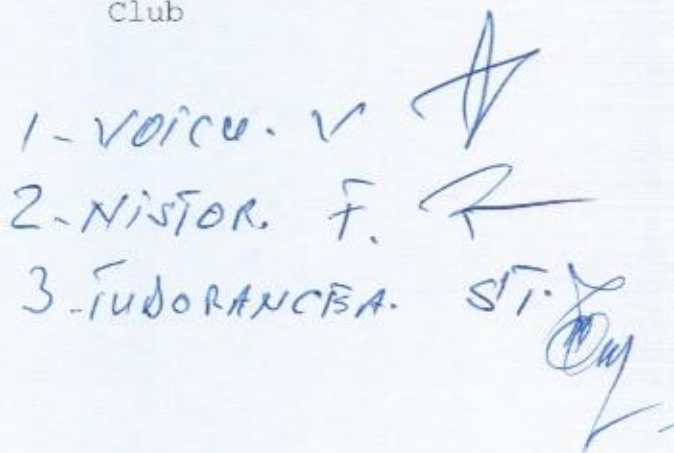 Club
1-VOICU. V
2-NISTOR. F.
3-TUDORANCEA. ST.